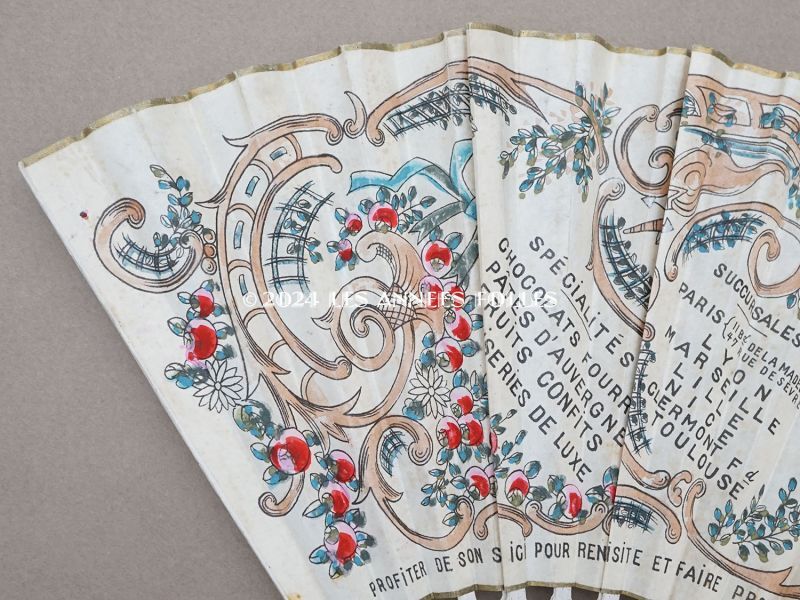 © 2024 LES ANNÉES FOLLES
SPÉCIALITÉS
CHOCOLATS FOURR
PATES D'AUVERGNE
FRUITS CONFITS
SERIES DE LUXE
SUCCURSALES
PARIS { 11 Bd DE LA MADE
47, RUE DE SÈVR
LYON
MARSEILLE
LILLE
NICE
CLERMONT Fd
TOULOUSE
PROFITER DE SON S ICI POUR REN ISITE ET FAIRE PRO